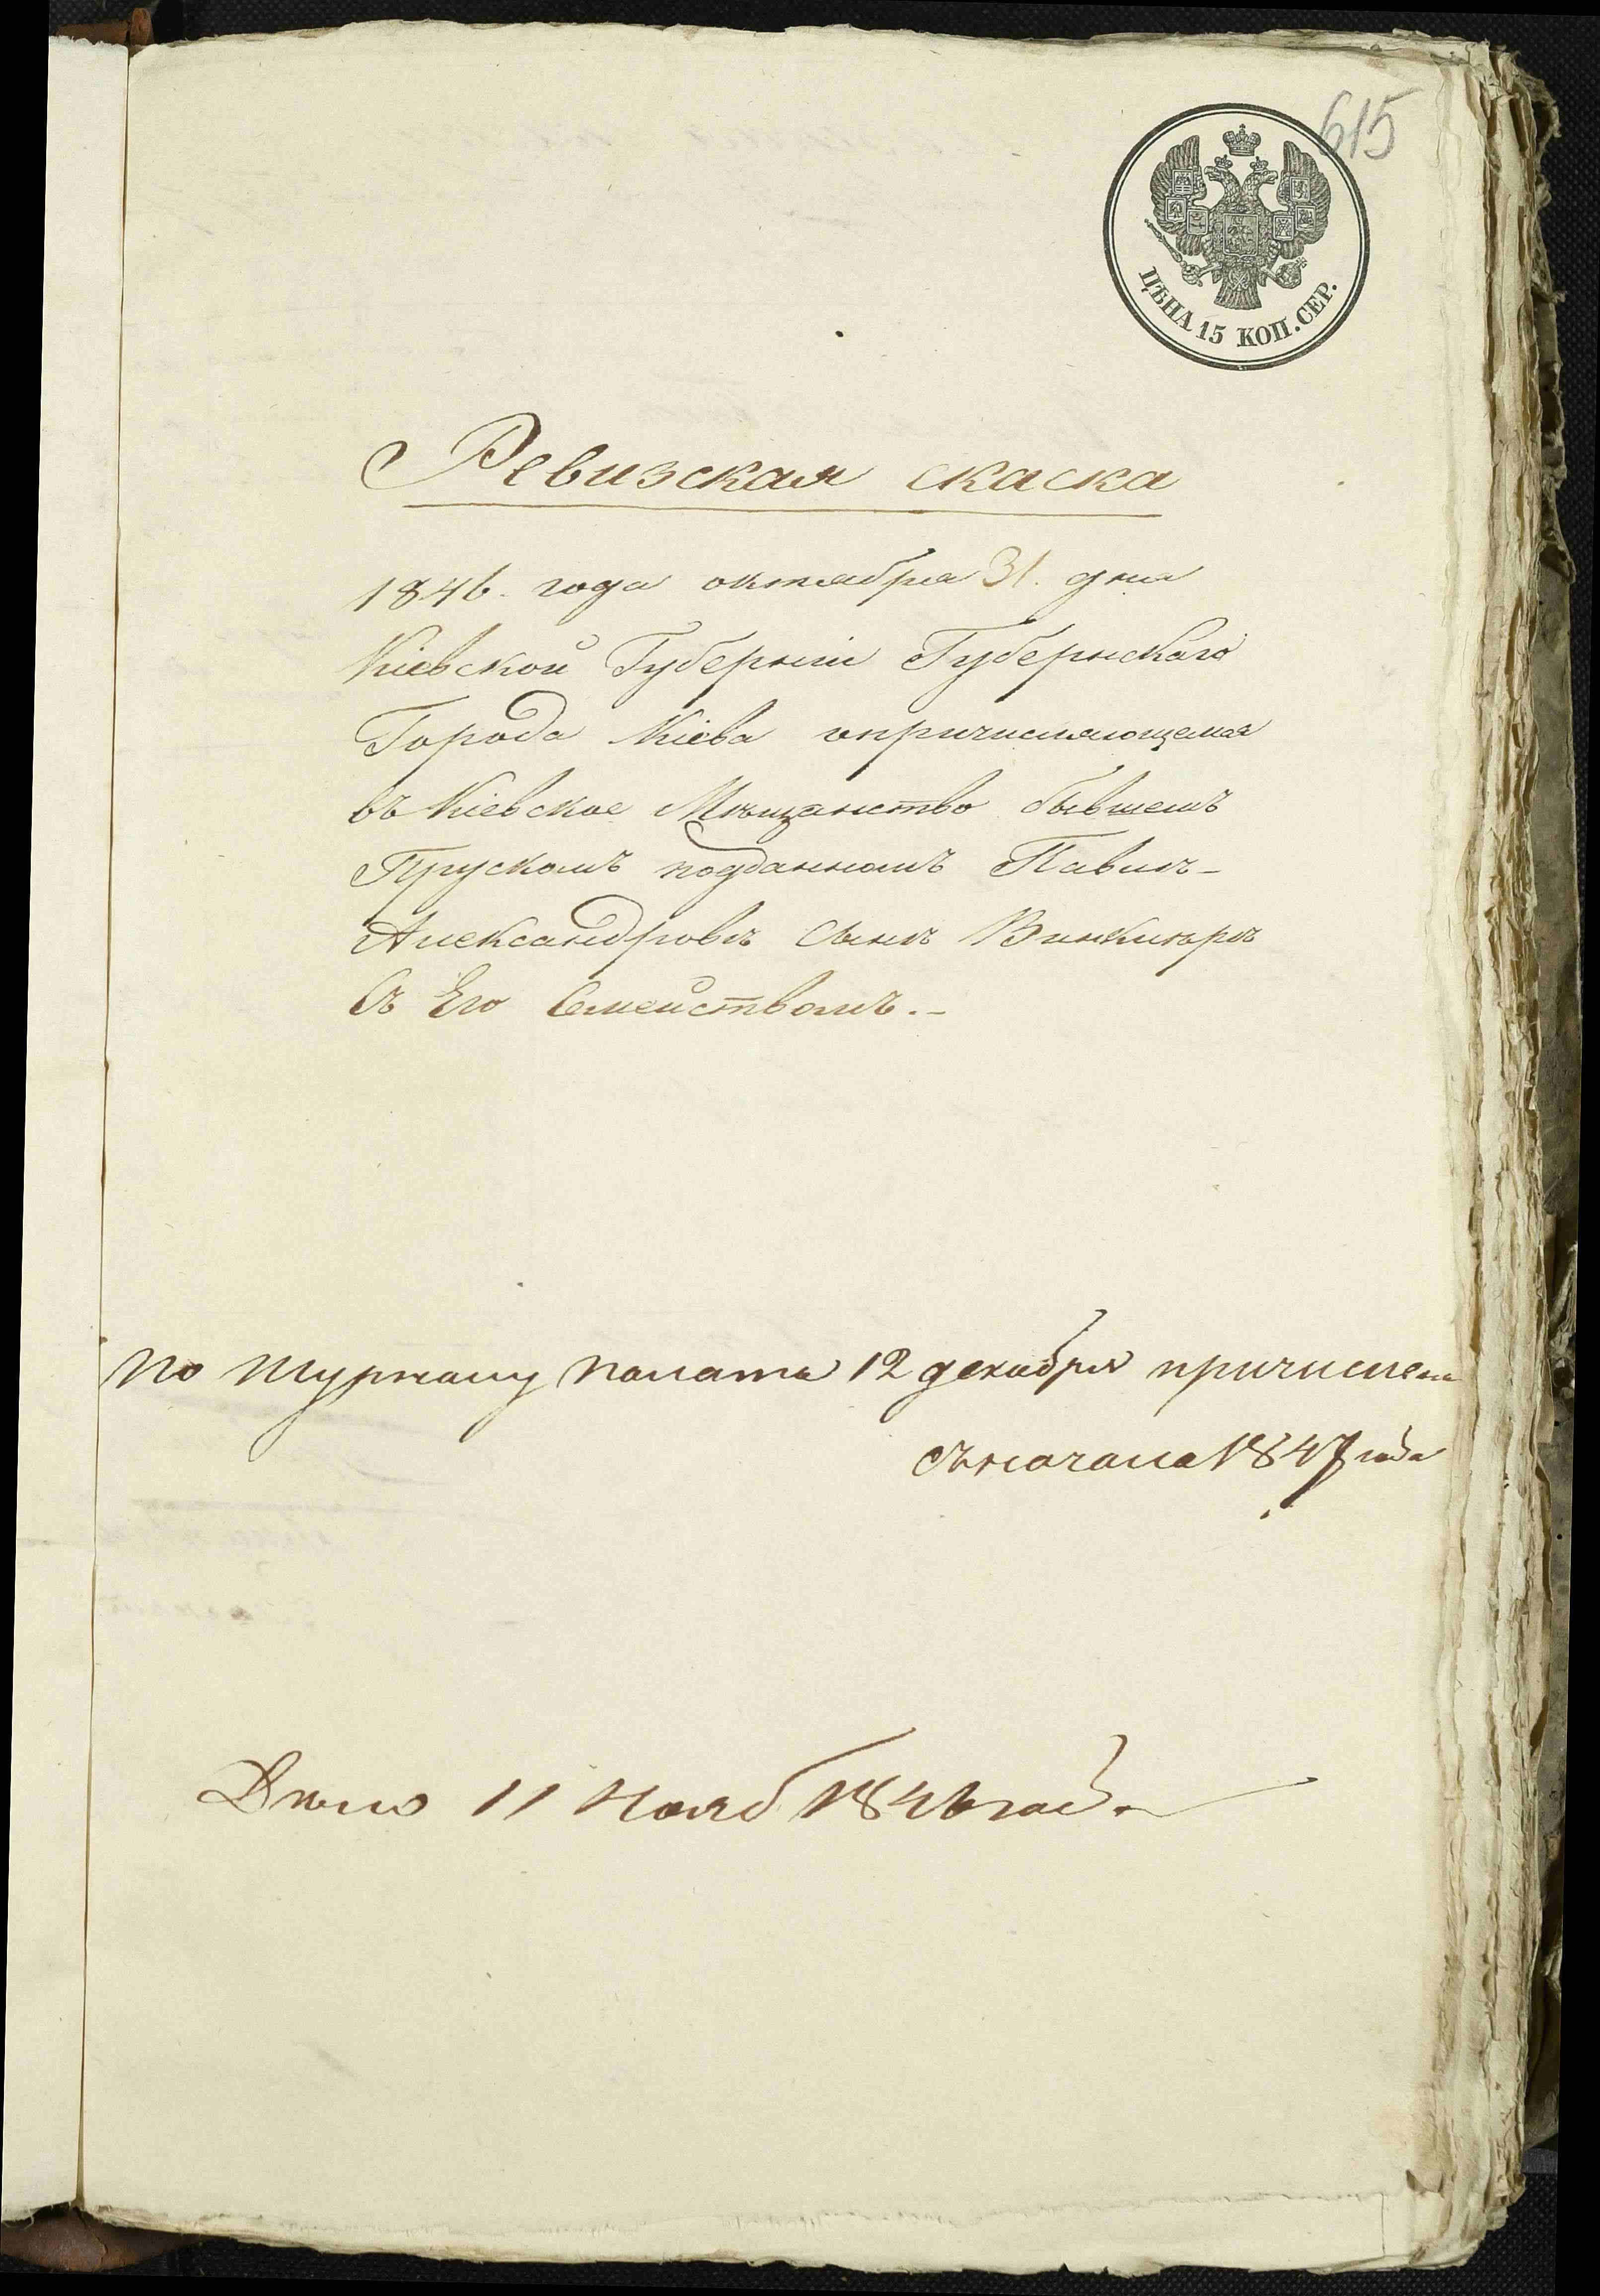 615
ЦѢНА 15 КОП. СЕР.
Ревизская скаска
1846. года октября 31. дня
Кіевской Губерніи Губернскаго
Города Кіева опричисляющемся
въ Кіевское Мѣщанство бывшемъ
Прускомъ подданномъ Павлѣ-
Александровѣ сынѣ Винклерѣ
Съ Его Семействомъ.-
По журналу палаты 12 декабря причислен
съ начала 1847 года
Дѣло 11 Нояб 1846 года